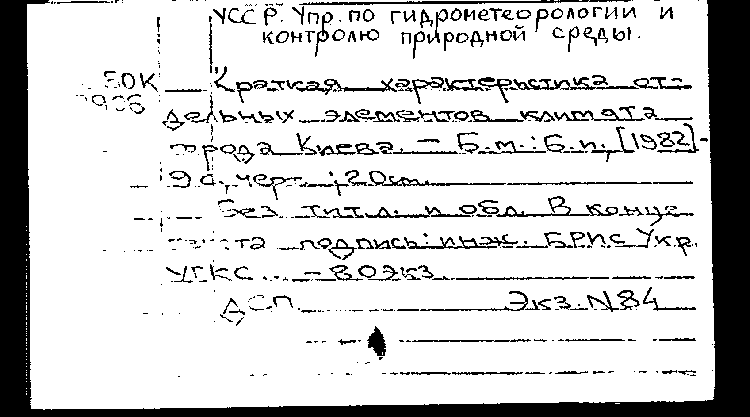 УССР. Упр. по гидрометеорологии и
контролю природной среды.
50К Краткая характеристика от-
дельных элементов климата
города Киева. – Б.м.: Б.и., [1982]-
9 с., черт. ; 20см.
Без тит.л. и обл. В конце
текста подпись: инж. БРИС Укр.
УГКС... – 80экз.
ДСП Экз. N84